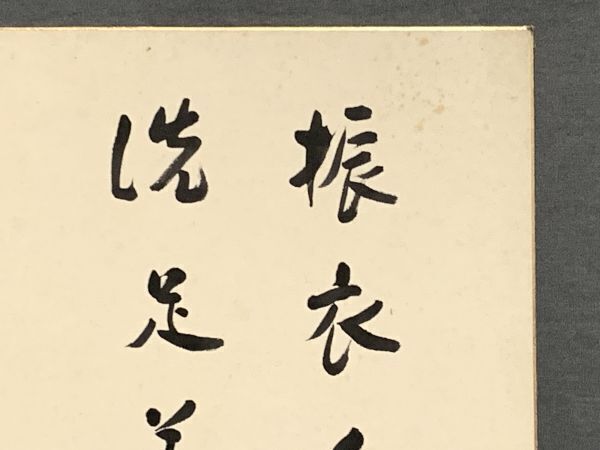 振衣
洗足